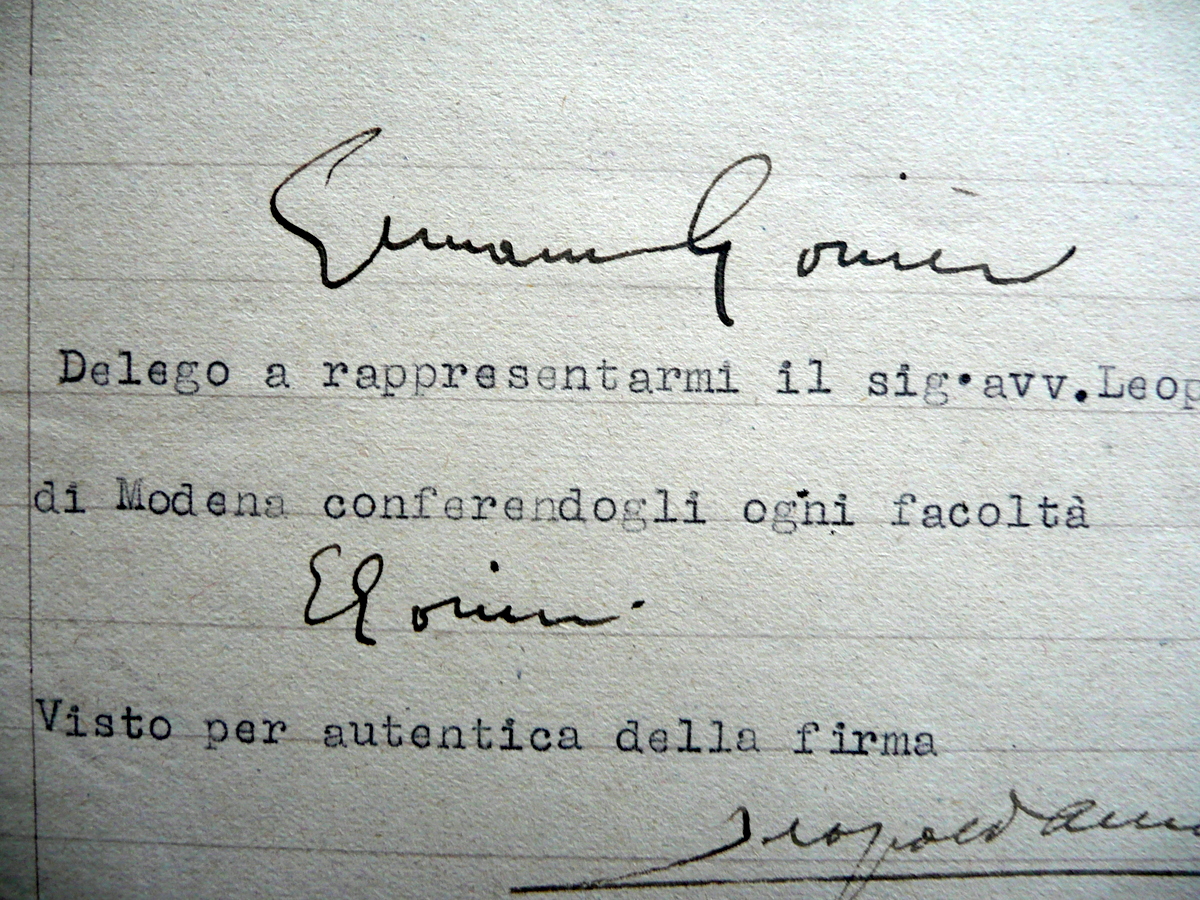 Delego a rappresentarmi il sig.avv.Leop
di Modena conferendogli ogni facoltà
Visto per autentica della firma
Leopold